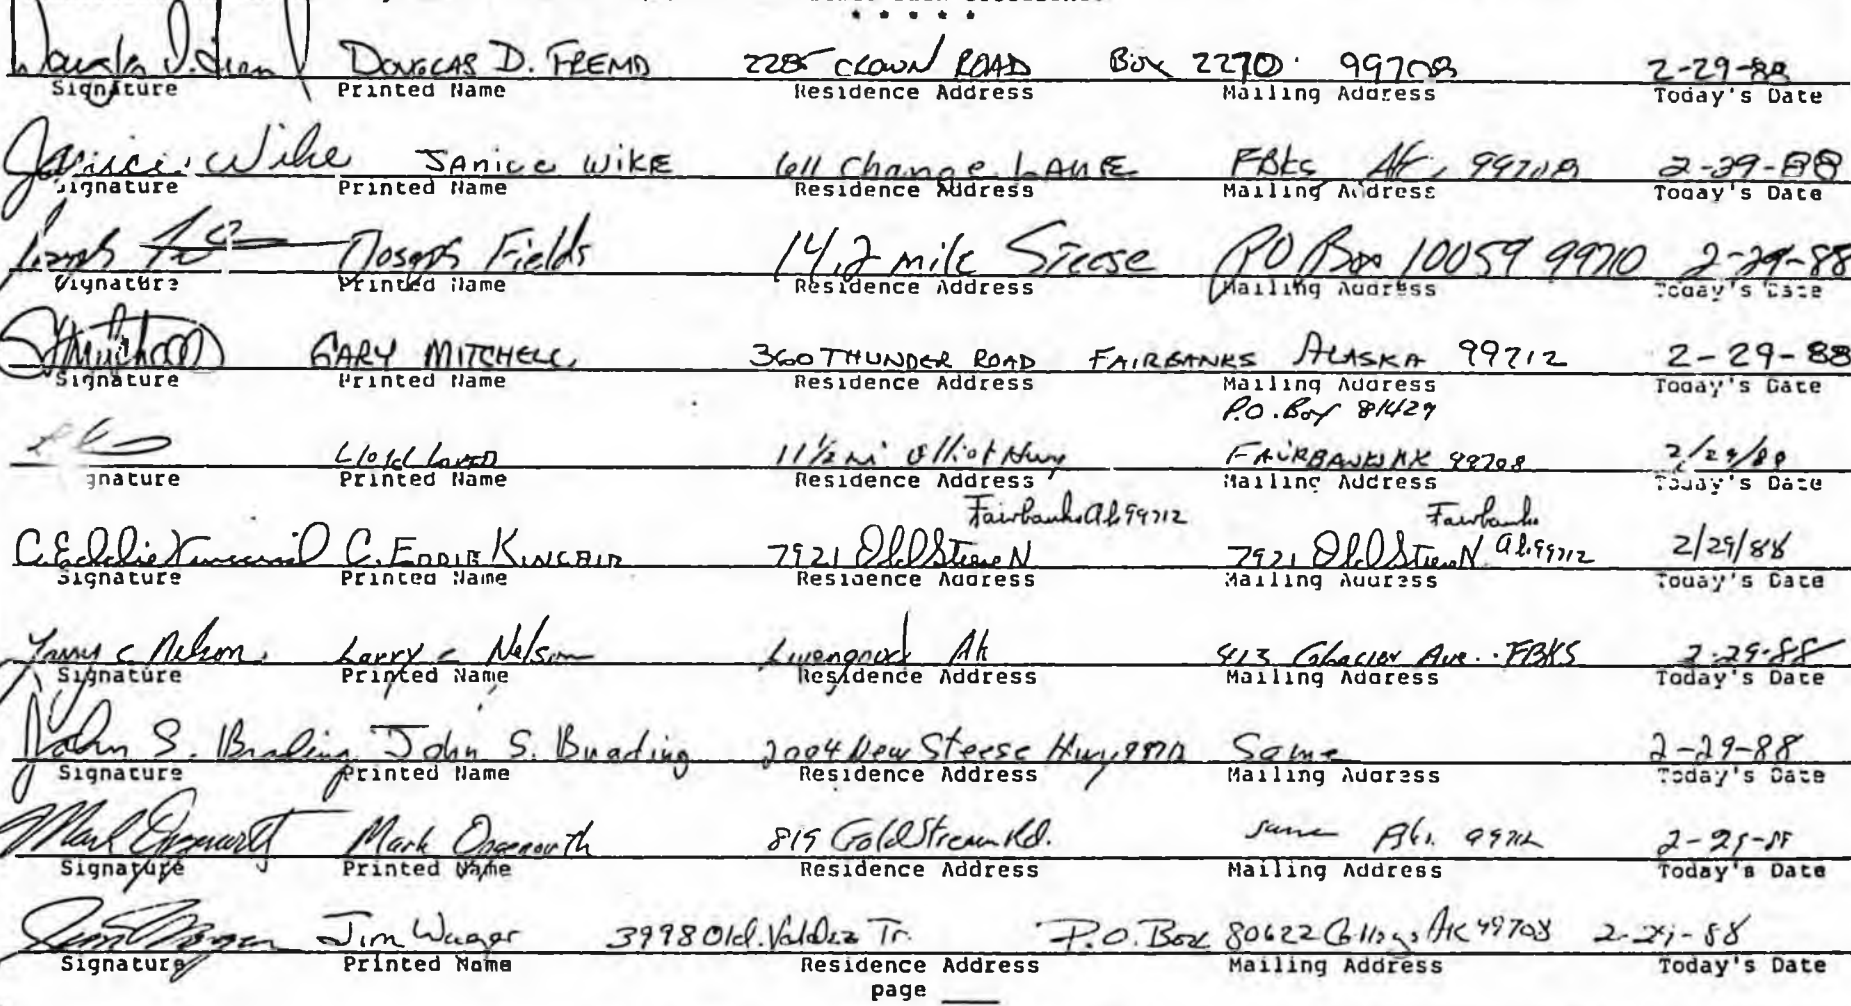 * * * * *
DOUGLAS D. FREMD 2285 CLOWN ROAD Box 2270 99708 2-29-88
Signature Printed Name Residence Address Mailing Address Today's Date
Janice Wike JANICE WIKE 611 Change LANE FBks AK, 99708 2-29-88
Signature Printed Name Residence Address Mailing Address Today's Date
Joseph Fields 14.2 mile Steese PO Box 10059 99710 2-29-88
Signature Printed Name Residence Address Mailing Address Today's Date
GARY MITCHELL 360 THUNDER ROAD FAIRBANKS ALASKA 99712 2-29-88
Signature Printed Name Residence Address Mailing Address Today's Date
P.O. Box 81429
11 1/2 mi Elliot Hwy FAIRBANKS AK 99708 2/29/88
gnature Printed Name Residence Address Mailing Address Today's Date
Fairbanks Ak 99712 Fairbanks
C. Eddie Kincaid C. EDDIE KINCAID 7921 Old Steese N 7921 Old Steese N Ak 99712 2/29/88
Signature Printed Name Residence Address Mailing Address Today's Date
Larry C Nelson Larry C Nelson Livengood Ak 413 Glacier Ave. FBKS 2-29-88
Signature Printed Name Residence Address Mailing Address Today's Date
John S. Brading John S. Brading 2004 New Steese Hwy, 99712 Same 2-29-88
Signature Printed Name Residence Address Mailing Address Today's Date
Mark Mark 819 GoldStream Rd. same 99712 2-29-88
Signature Printed Name Residence Address Mailing Address Today's Date
Jim Jim 3998 Old Valdez Tr. P.O. Box 80622 College AK 99708 2-29-88
Signature Printed Name Residence Address Mailing Address Today's Date
page